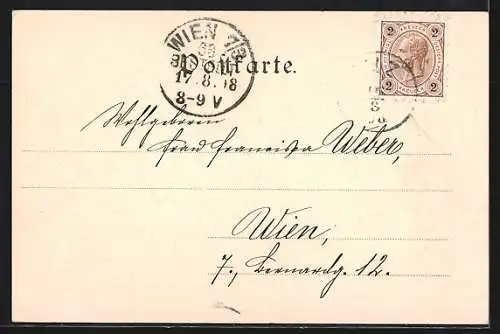 WIEN 7/3
Postkarte.
17.8.98
8-9 V
2 2
2 2
Wohlgeboren
Frau Francisca Weber,
Wien,
7., Bernardg. 12.